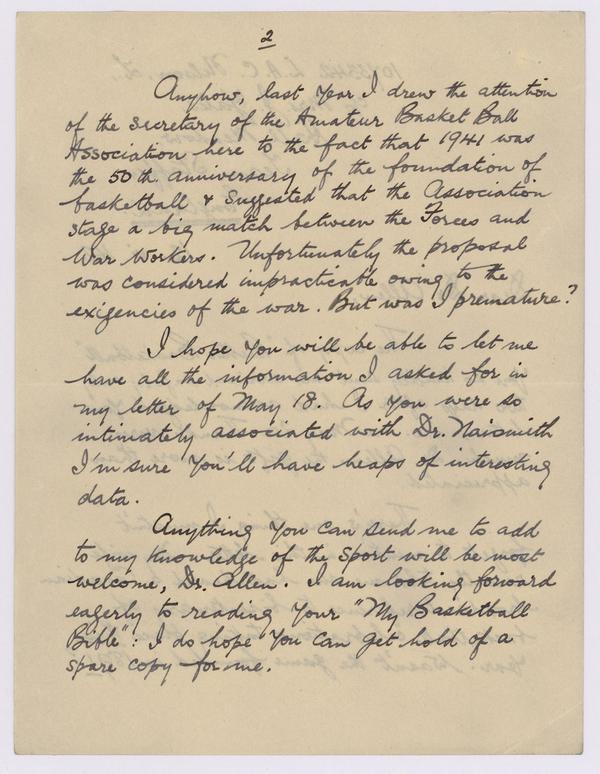 2
Anyhow, last year I drew the attention
of the secretary of the Amateur Basket Ball
Association here to the fact that 1941 was
the 50th anniversary of the foundation of
basketball & suggested that the Association
stage a big match between the Forces and
War Workers. Unfortunately the proposal
was considered impracticable owing to the
exigencies of the war. But was I premature?
I hope you will be able to let me
have all the information I asked for in
my letter of May 18. As you were so
intimately associated with Dr. Naismith
I'm sure you'll have heaps of interesting
data.
Anything you can send me to add
to my knowledge of the sport will be most
welcome, Dr. Allen. I am looking forward
eagerly to reading your "My Basketball
Bible": I do hope you can get hold of a
spare copy for me.